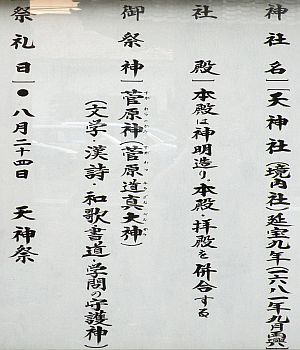 神社名〕〔天神社（境内社）延宝九年（一六八一年九月再興
社殿〕本殿は神明造り。本殿・拝殿を併合する
御祭神〕菅原神（菅原道真大神）
（文学・漢詩・和歌・書道・学問の守護神）
祭礼日〕●八月二十四日　天神祭